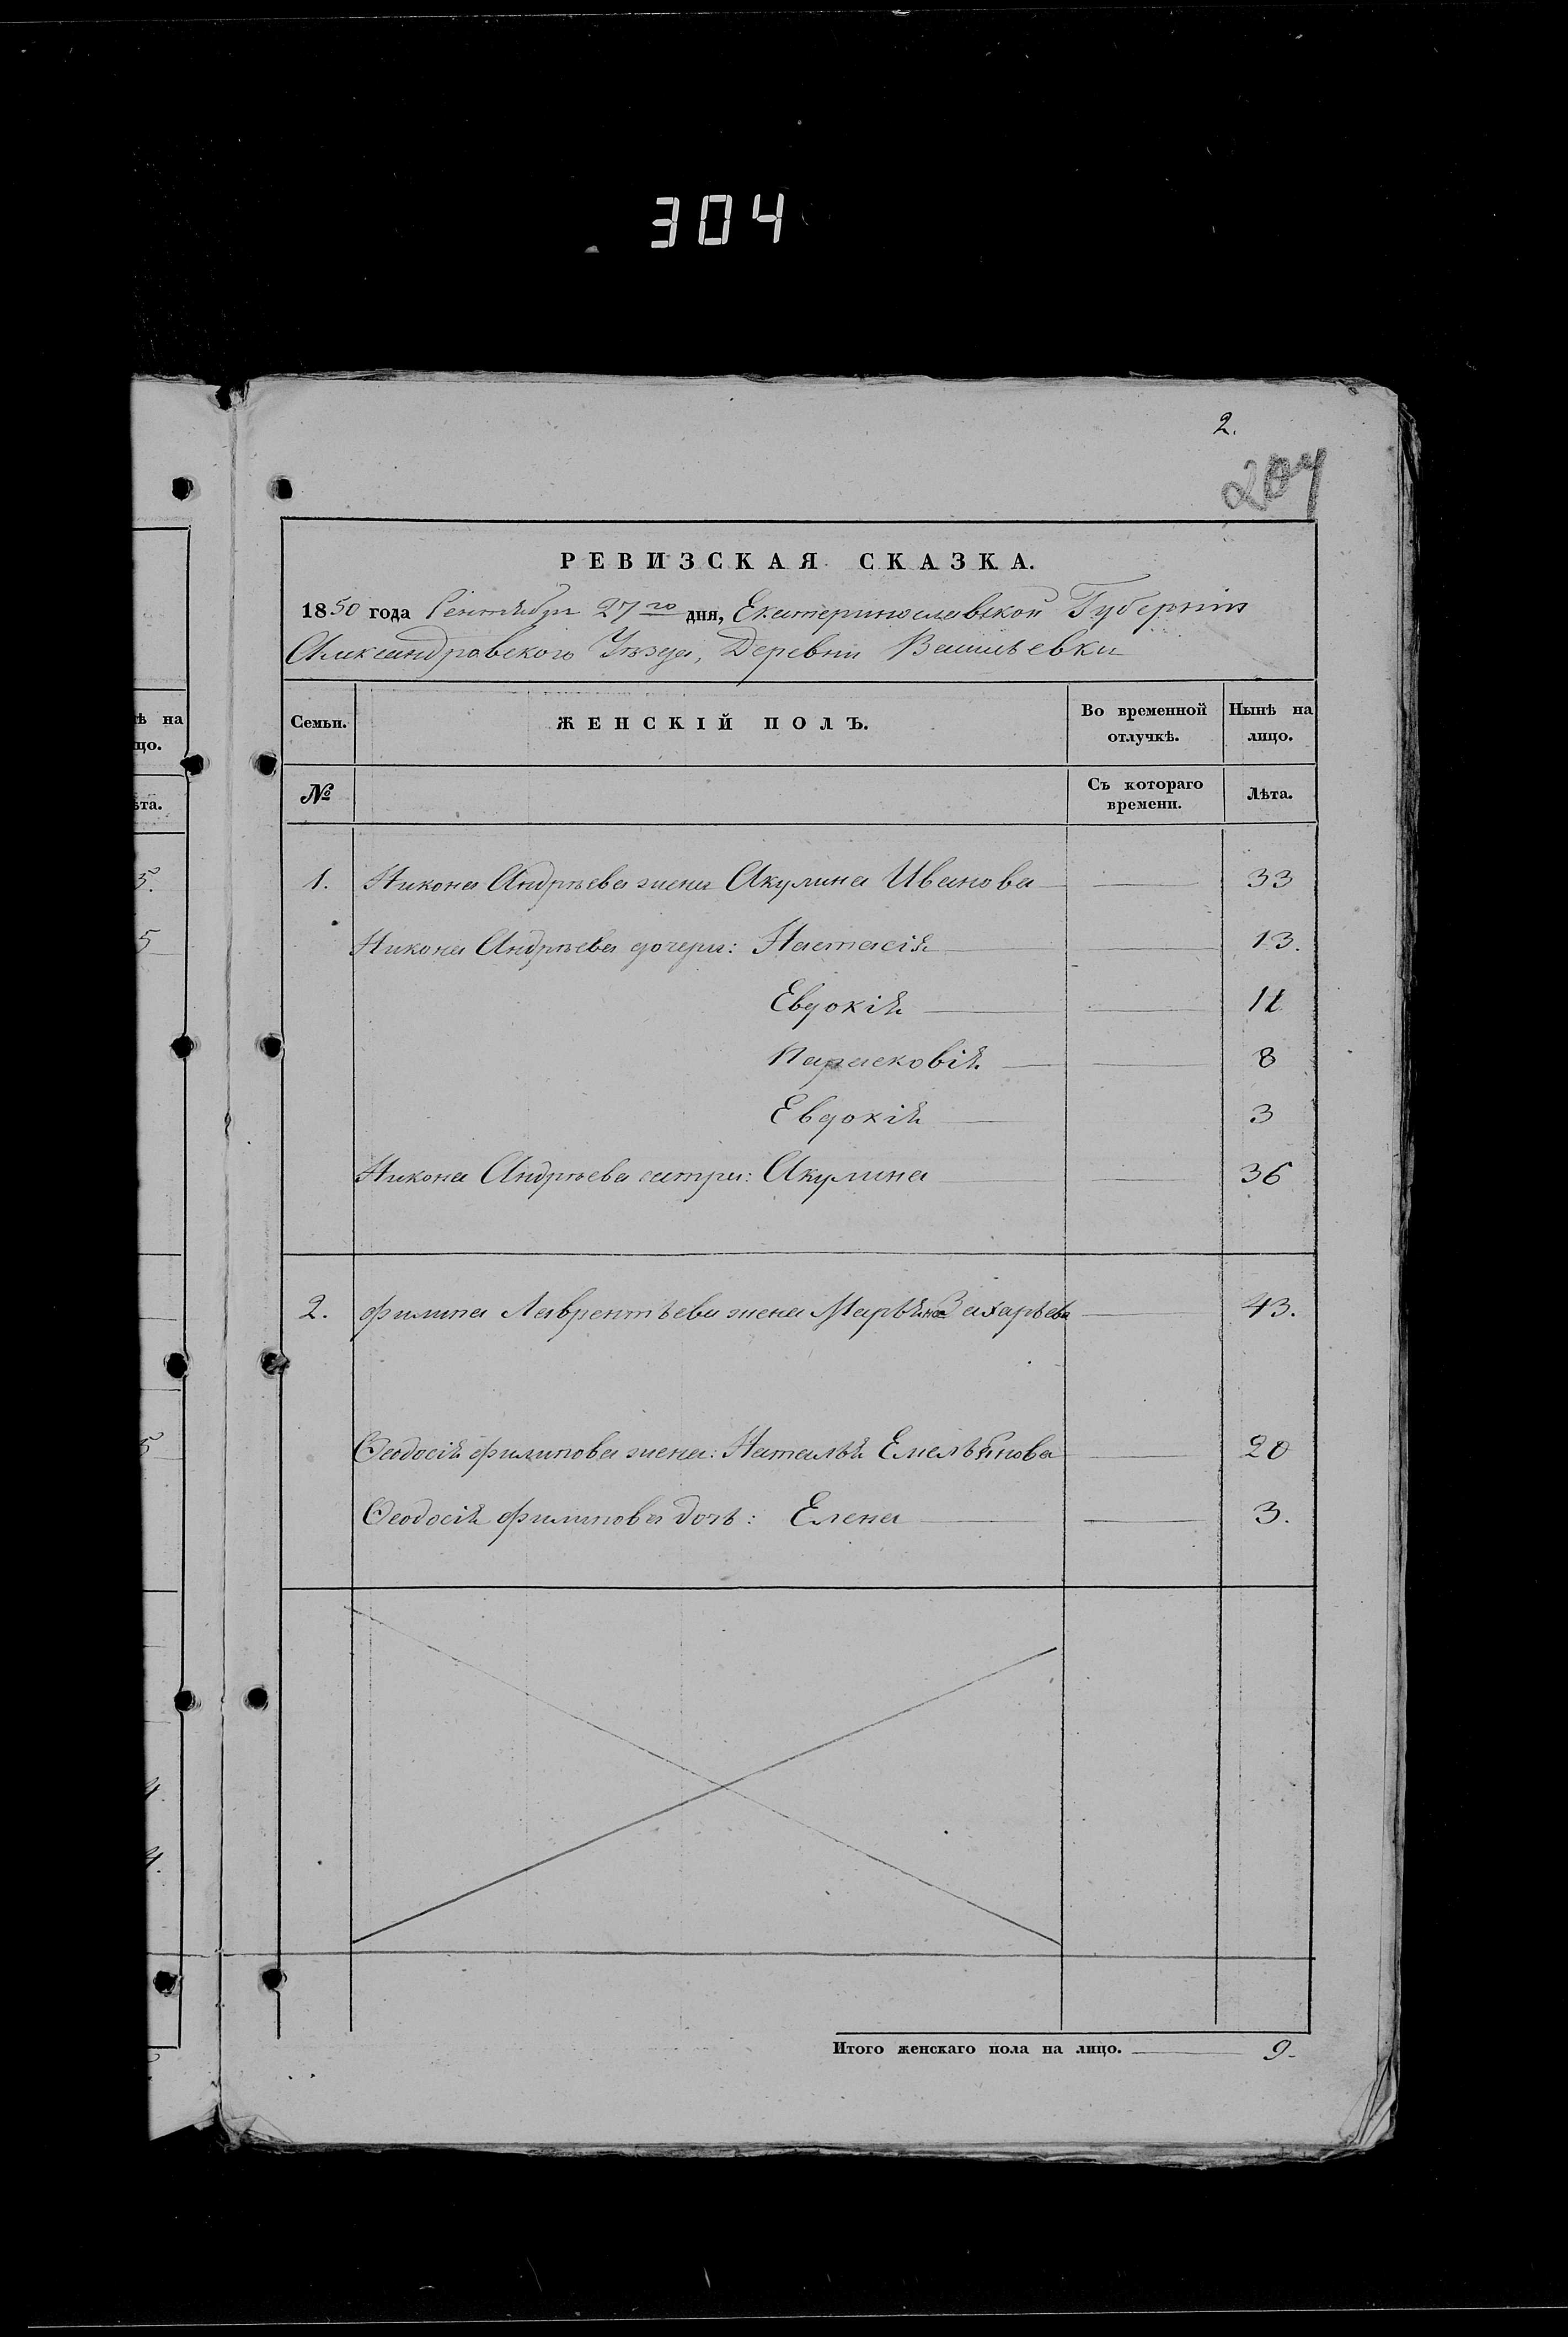 304
2.
204
РЕВИЗСКАЯ СКАЗКА.
1850 года Сентября 27го дня, Екатеринославской Губернии
Александровского Уѣзда, Деревни Васильевки
Семьи. ЖЕНСКІЙ ПОЛЪ. Во временной отлучкѣ. Нынѣ на лицо.
№ Съ котораго времени. Лѣта.
1. Никона Андрѣева жена Акулина Иванова 33
Никона Андрѣева дочери: Настасія 13.
Евдокія
Парасковія 8
Евдокія 3
Никона Андрѣева сестра: Акулина 36
2. Филипа Лаврентьева жена Захарьева 43.
Ѳеодосія Филипова жена: Наталья Емельянова 20
Ѳеодосія Филипова дочь: Елена 3.
Итого женскаго пола на лицо. 9.
ѣ на
цо.
ѣта.
5.
5
5